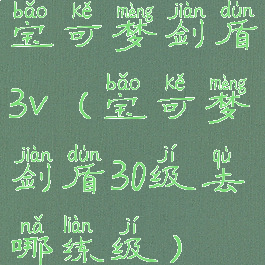 bǎo kě mèng jiàn dùn
宝可梦剑盾
bǎo kě mèng
3v（宝可梦
jiàn dùn jí qù
剑盾30级去
nǎ liàn jí
哪练级）